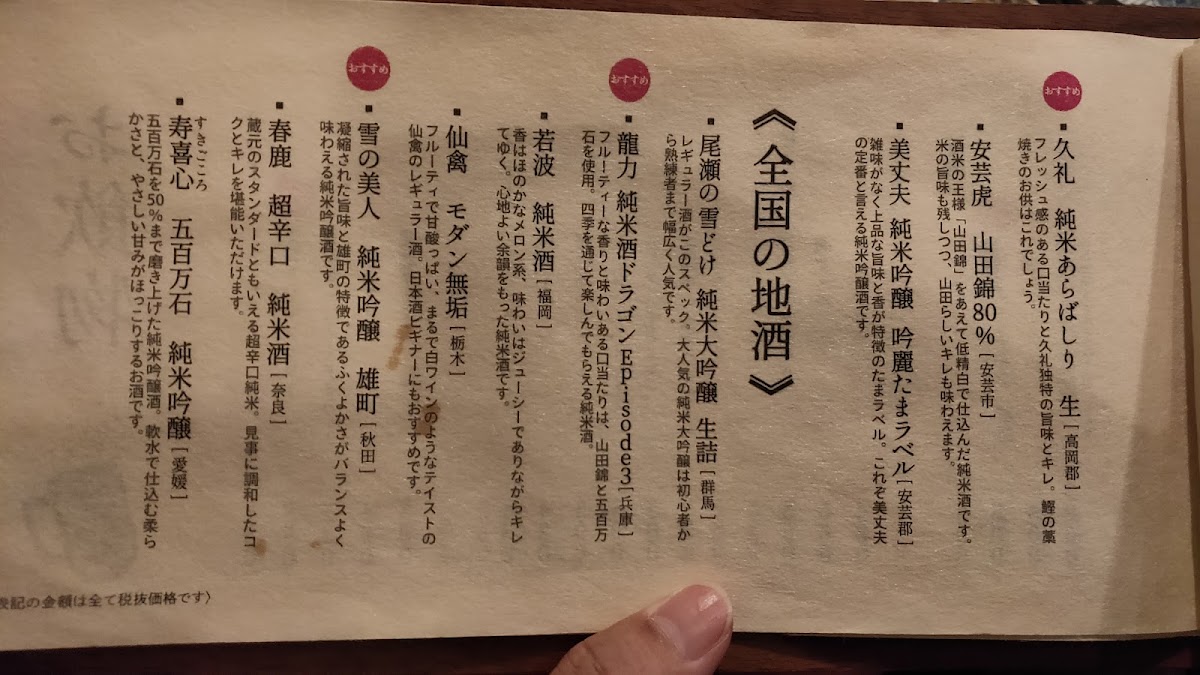 おすすめ
■久礼 純米あらばしり 生[高岡郡]
フレッシュ感のある口当たりと久礼独特の旨味とキレ。鰹の藁
焼きのお供はこれでしょう。
■安芸虎 山田錦80%[安芸市]
酒米の王様「山田錦」をあえて低精白で仕込んだ純米酒です。
米の旨味も残しつつ、山田らしいキレも味わえます。
■美丈夫 純米吟醸 吟麗たまラベル[安芸郡]
雑味がなく上品な旨味と香が特徴のたまラベル。これぞ美丈夫
の定番と言える純米吟醸酒です。
《全国の地酒》
■尾瀬の雪どけ 純米大吟醸 生詰[群馬]
レギュラー酒がこのスペック。大人気の純米大吟醸は初心者か
ら熟練者まで幅広く人気です。
おすすめ
■龍力 純米酒ドラゴンEpisode3[兵庫]
フルーティーな香りと味わいある口当たりは、山田錦と五百万
石を使用。四季を通じて楽しんでもらえる純米酒。
■若波 純米酒[福岡]
香はほのかなメロン系、味わいはジューシーでありながらキレ
てゆく。心地よい余韻をもった純米酒です。
■仙禽 モダン無垢[栃木]
フルーティで甘酸っぱい、まるで白ワインのようなテイストの
仙禽のレギュラー酒。日本酒ビギナーにもおすすめです。
おすすめ
■雪の美人 純米吟醸 雄町[秋田]
凝縮された旨味と雄町の特徴であるふくよかさがバランスよく
味わえる純米吟醸酒です。
■春鹿 超辛口 純米酒[奈良]
蔵元のスタンダードともいえる超辛口純米。見事に調和したコ
クとキレを堪能いただけます。
すきごころ
■寿喜心 五百万石 純米吟醸[愛媛]
五百万石を50%まで磨き上げた純米吟醸酒。軟水で仕込む柔ら
かさと、やさしい甘みがほっこりするお酒です。
表記の金額は全て税抜価格です〉